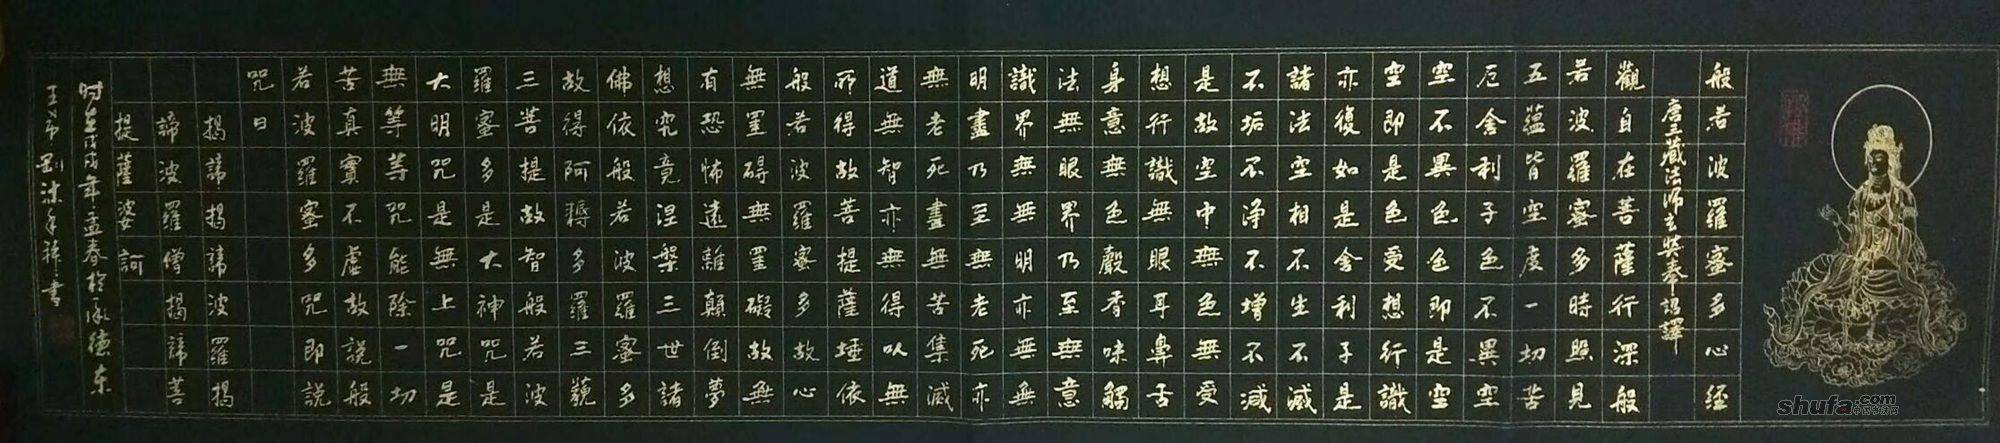 般若波羅蜜多心經
唐三藏法師玄奘奉詔譯
觀自在菩薩行深般
若波羅蜜多時照見
五蘊皆空度一切苦
厄舍利子色不異空
空不異色色即是空
空即是色受想行識
亦復如是舍利子是
諸法空相不生不滅
不垢不淨不增不減
是故空中無色無受
想行識無眼耳鼻舌
身意無色聲香味觸
法無眼界乃至無意
識界無無明亦無無
明盡乃至無老死亦
無老死盡無苦集滅
道無智亦無得以無
所得故菩提薩埵依
般若波羅蜜多故心
無罣碍無罣礙故無
有恐怖遠離顛倒夢
想究竟涅槃三世諸
佛依般若波羅蜜多
故得阿耨多羅三藐
三菩提故智般若波
羅蜜多是大神咒是
大明咒是無上咒是
無等等咒能除一切
苦真實不虛故說般
若波羅蜜多咒即說
咒曰
揭諦揭諦波羅揭
諦波羅僧揭諦菩
提薩婆訶
时在戊戌年孟春於承德東
王希剛沐手書
shufa.com